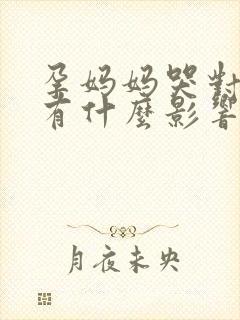 孕妈妈哭對
有什麽影響
月夜未央